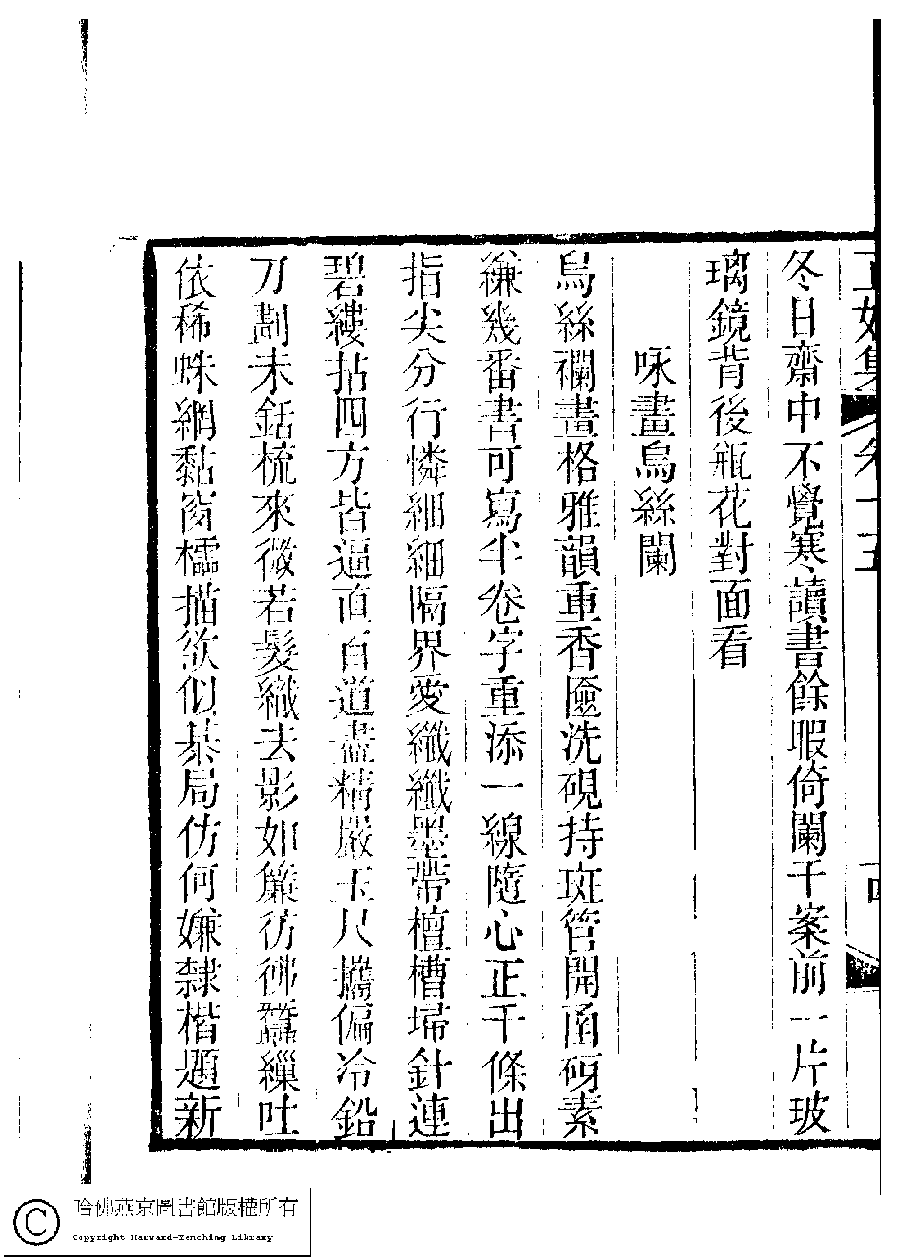 正始集 卷十五 四
冬日齋中不覺寒讀書餘暇倚闌干案前一片玻
璃鏡背後瓶花對面看
咏畫烏絲闌
烏絲襴畫格雅韻重香匳洗硯持斑管開函砑素
縑幾番書可寫半卷字重添一線隨心正千條出
指尖分行憐細細隔界愛纖纖墨帶檀槽埽針連
碧縷拈四方皆逼直百道盡精嚴玉尺攜偏冷鉛
刀劃未銛梳來微若髮織去影如簾彷彿蠶繅吐
依稀蛛網黏窗檽描欲似棊局仿何嫌隸楷題新
哈佛燕京圖書館版權所有
Copyright Harvard-Yenching Library